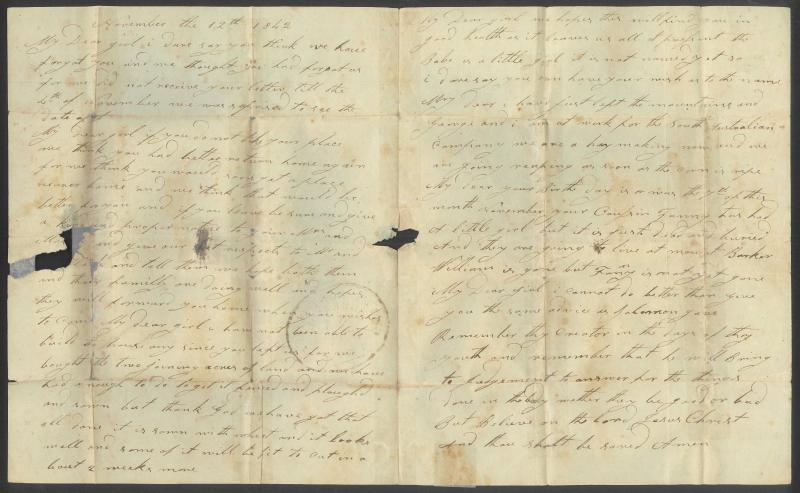 November the 12th 1842
My Dear girl i dare say you think we have
forgot you and we thought you had forgot us
for we did not receive your letter till the
4th of November we was sprised to see the
date of it
My dear girl if you do not like your place
we think you had better return home again
for we think you would soon get a place
nearer home and we think that would be
better for you and if you leave be sure and give
a proper notice to your Mrs and
and give our respects to Mr and
and tell them we hope both them
and their family are doing well and hopes
they will forward you home when you wishes
to come My dear girl i have not been able to
build a house any since you left us for we
bought the two joining acres of land and we have
had enough to do to get it fenced and ploughed
and sown but thank God we have got that
all done it is sown with wheat and it looks
well and some of it will be fit to cut in a
bout 2 weeks more
My Dear girl we hopes this will find you in
good health as it leaves us all at present the
Babe is a little girl it is not named yet so
i dare say you can have your wish as to the name
My dear i have just left the mountains and
George and i am at work for the South Australian
Company we are a hay making now and we
are going reaping as soon as the corn is ripe
My dear your Birth day is or was the 7th of this
month November your Cousin Fanny has had
A little girl but it is dead and buried
And they are going to live at mount Barker
William is gone but Fanny is not yet gone
My Dear Girl i cannot do better than give
you the same advice as Solomon gave
Remember thy Creator in the days of thy
youth and remember that he will Bring
to Judgement to answer for the things
done in the body wether they be good or bad
But Believe on the Lord Jesus Christ
And thou shalt be saved Amen